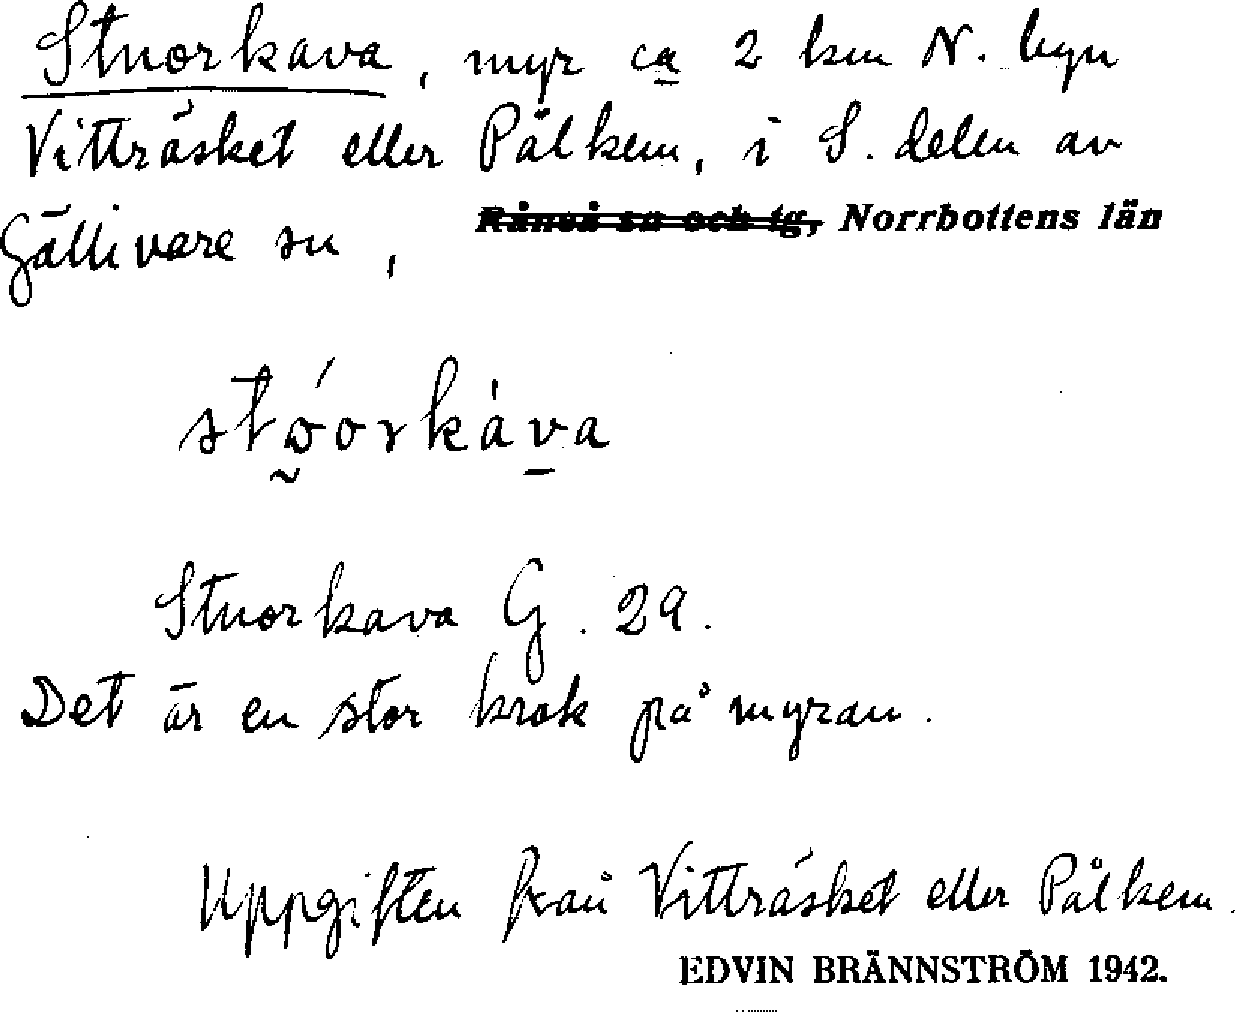 Stuorkava, myr ca 2 km N. byn
Vitträsket eller Pålkem, i S. delen av
Gällivare sn, Råneå sn och tg, Norrbottens län
stώ̰orkàv̱a
Stuorkava G. 29.
Det är en stor krok på myran.
Uppgiften från Vitträsket eller Pålkem.
EDVIN BRÄNNSTRÖM 1942.